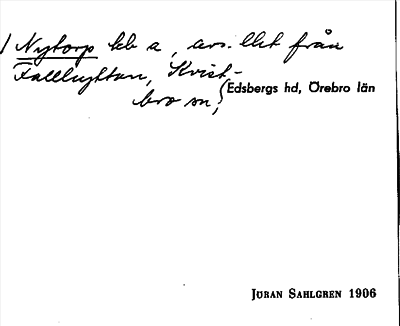 Nytorp lht a, avs. lht från
Fallhyttan, Kvist-
bro sn,
Edsbergs hd, Örebro län
JÖRAN SAHLGREN 1906